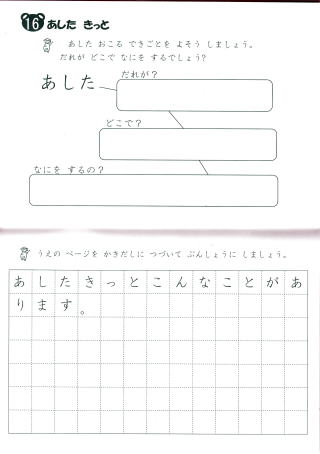 16 あした きっと
あした おこる できごとを よそう しましょう。
だれが どこで なにを するでしょう?
あした
だれが?
どこで?
なにを するの?
うえの ページを かきだしに つづいて ぶんしょうに しましょう。
あしたきっとこんなことがあ
ります。